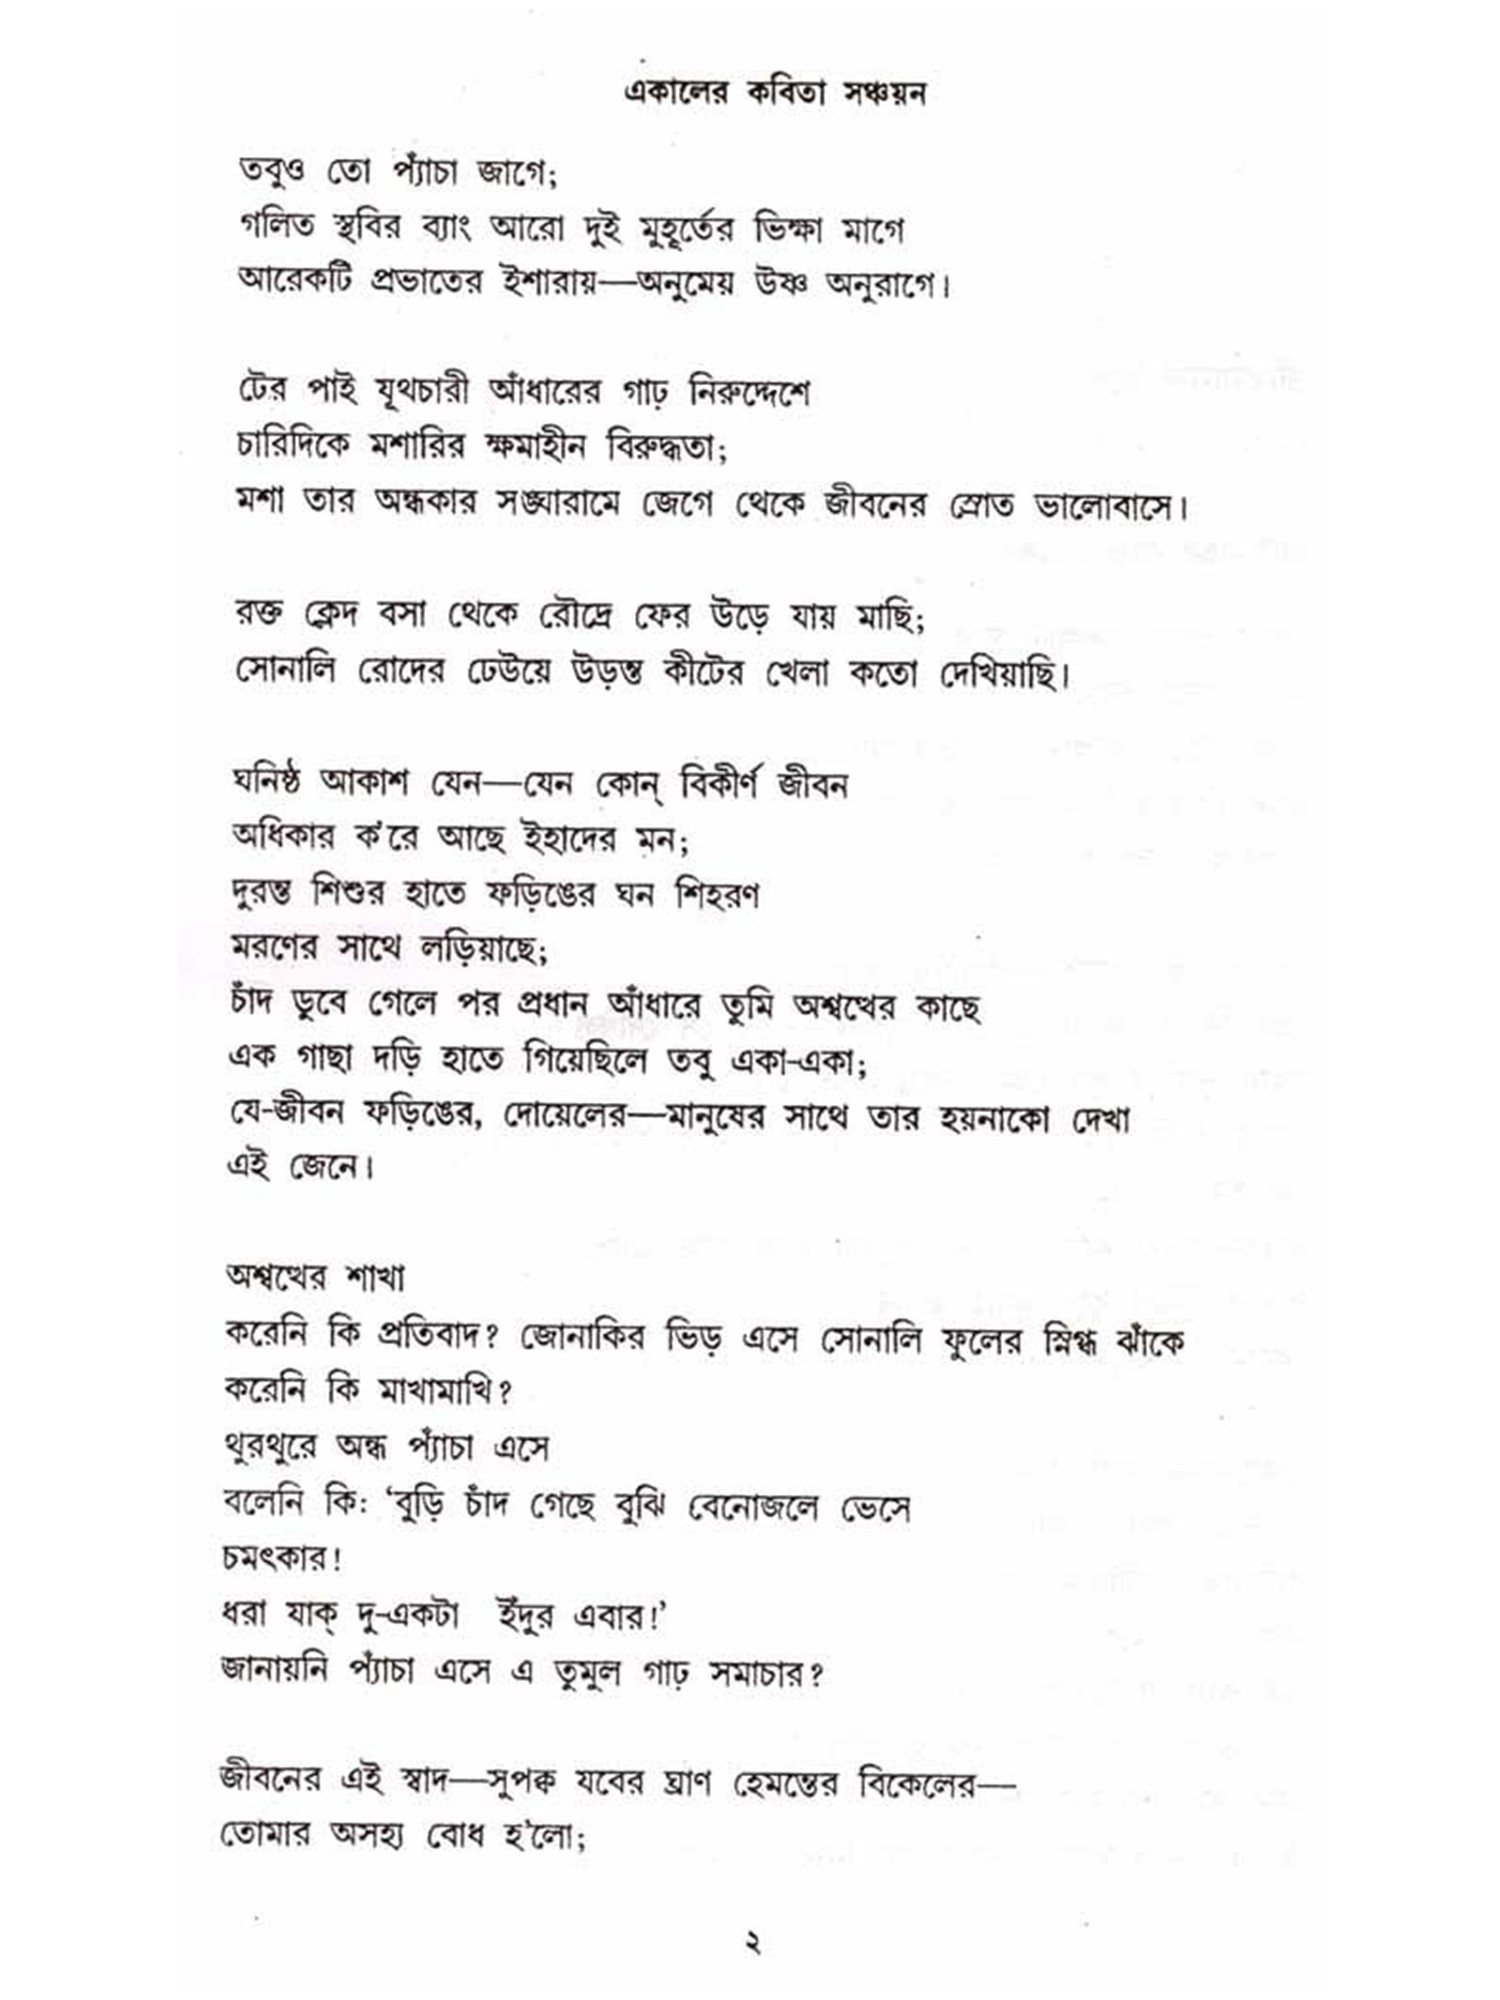 একালের কবিতা সঞ্চয়ন
তবুও তো প্যাঁচা জাগে;
গলিত স্থবির ব্যাং আরো দুই মুহূর্তের ভিক্ষা মাগে
আরেকটি প্রভাতের ইশারায়—অনুমেয় উষ্ণ অনুরাগে।
টের পাই যূথচারী আঁধারের গাঢ় নিরুদ্দেশে
চারিদিকে মশারির ক্ষমাহীন বিরুদ্ধতা;
মশা তার অন্ধকার সঙ্ঘারামে জেগে থেকে জীবনের স্রোত ভালোবাসে।
রক্ত ক্লেদ বসা থেকে রৌদ্রে ফের উড়ে যায় মাছি;
সোনালি রোদের ঢেউয়ে উড়ন্ত কীটের খেলা কতো দেখিয়াছি।
ঘনিষ্ঠ আকাশ যেন—যেন কোন্ বিকীর্ণ জীবন
অধিকার ক'রে আছে ইহাদের মন;
দুরন্ত শিশুর হাতে ফড়িঙের ঘন শিহরণ
মরণের সাথে লড়িয়াছে;
চাঁদ ডুবে গেলে পর প্রধান আঁধারে তুমি অশ্বত্থের কাছে
এক গাছা দড়ি হাতে গিয়েছিলে তবু একা-একা;
যে-জীবন ফড়িঙের, দোয়েলের—মানুষের সাথে তার হয়নাকো দেখা
এই জেনে।
অশ্বত্থের শাখা
করেনি কি প্রতিবাদ? জোনাকির ভিড় এসে সোনালি ফুলের স্নিগ্ধ ঝাঁকে
করেনি কি মাখামাখি?
থুরথুরে অন্ধ প্যাঁচা এসে
বলেনি কি: 'বুড়ি চাঁদ গেছে বুঝি বেনোজলে ভেসে
চমৎকার!
ধরা যাক্ দু-একটা ইঁদুর এবার!'
জানায়নি প্যাঁচা এসে এ তুমুল গাঢ় সমাচার?
জীবনের এই স্বাদ—সুপক্ক যবের ঘ্রাণ হেমন্তের বিকেলের—
তোমার অসহ্য বোধ হ'লো;
২